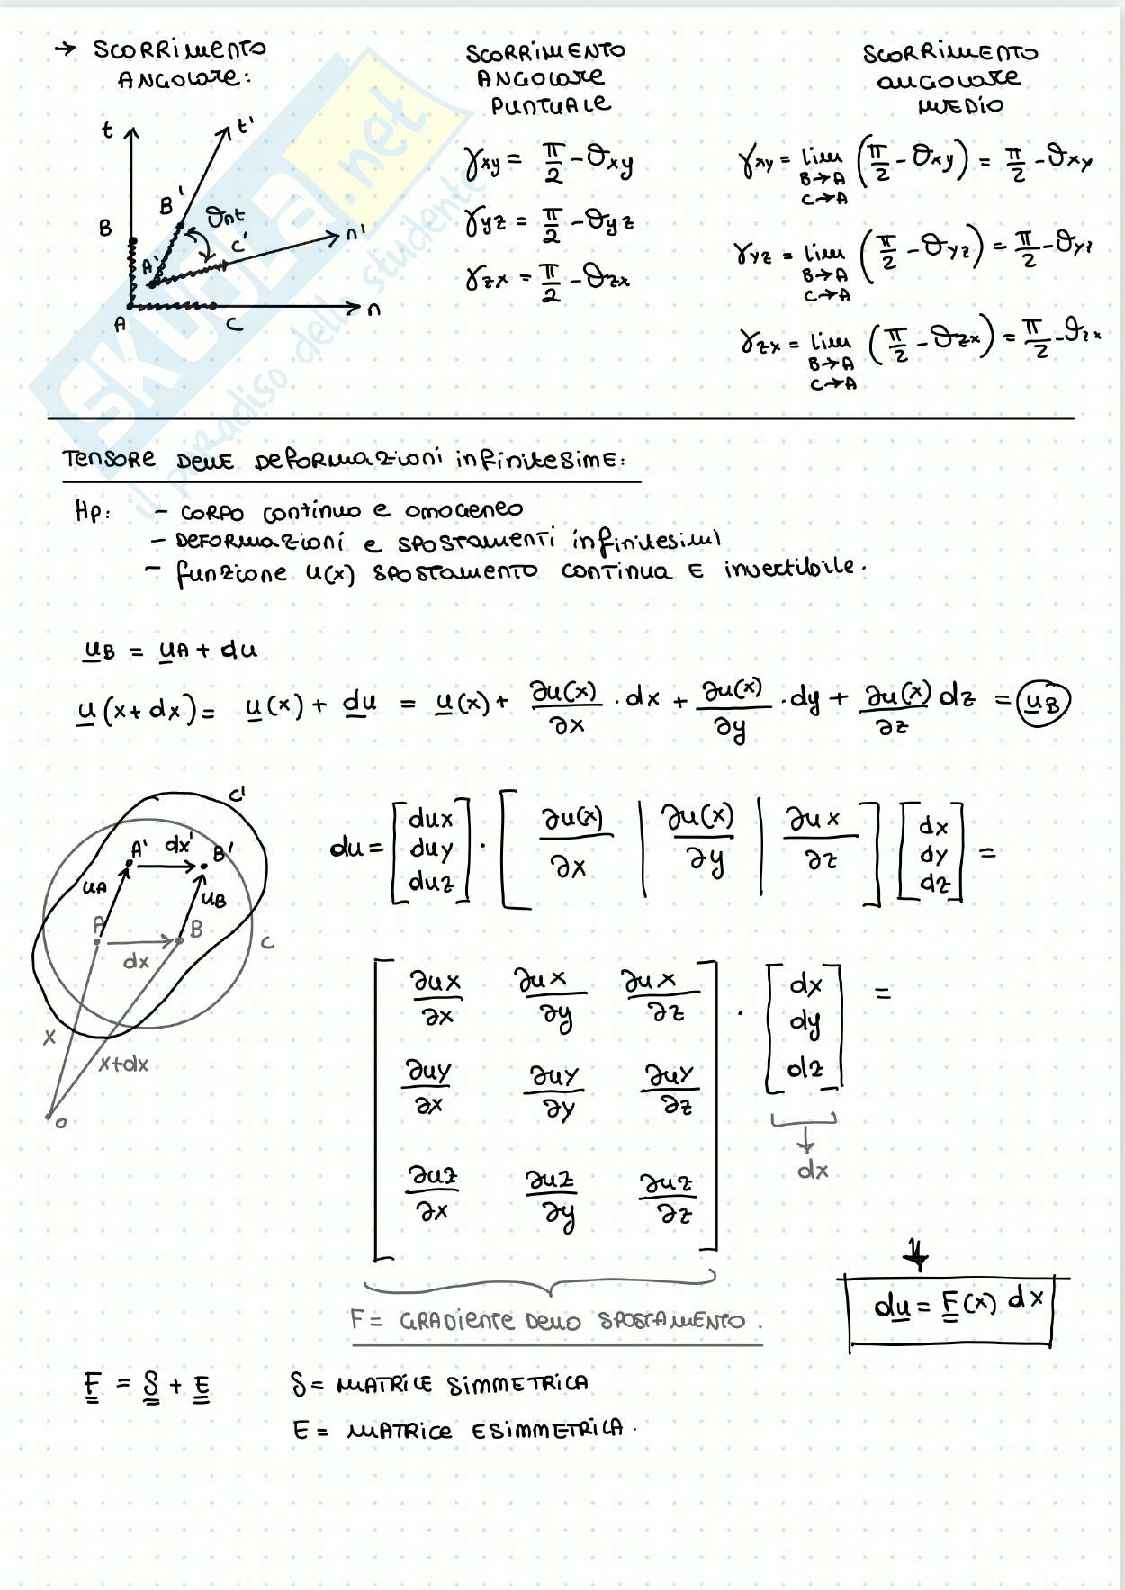 → SCORRIMENTO
ANGOLARE:
t
t'
B
B'
ϑnt
C'
n'
A'
A
C
n
SCORRIMENTO
ANGOLARE
PUNTUALE
γxy = π/2 - ϑxy
γyz = π/2 - ϑyz
γzx = π/2 - ϑzx
SCORRIMENTO
ANGOLARE
MEDIO
γxy = lim (π/2 - ϑxy) = π/2 - ϑxy
B→A
C→A
γyz = lim (π/2 - ϑyz) = π/2 - ϑyz
B→A
C→A
γzx = lim (π/2 - ϑzx) = π/2 - ϑzx
B→A
C→A
SKUOLA.net
il paradiso dello studente
TENSORE DELLE DEFORMAZIONI INFINITESIME:
Hp: - CORPO CONTINUO E OMOGENEO
- DEFORMAZIONI E SPOSTAMENTI INFINITESIMI
- FUNZIONE u(x) SPOSTAMENTO CONTINUA E INVERTIBILE.
uB = uA + du
u(x+dx) = u(x) + du = u(x) + ∂u(x)/∂x · dx + ∂u(x)/∂y · dy + ∂u(x)/∂z dz = uB
C'
A'
dx'
B'
uA
uB
A
B
dx
C
x
x+dx
O
du = [dux duy duz] · [∂u(x)/∂x | ∂u(x)/∂y | ∂ux/∂z] [dx dy dz] =
∂ux/∂x ∂ux/∂y ∂ux/∂z · dx =
∂uy/∂x ∂uy/∂y ∂uy/∂z dy
∂uz/∂x ∂uz/∂y ∂uz/∂z dz
dx
F = GRADIENTE DELLO SPOSTAMENTO.
du = F(x) dx
F = S + E
S = MATRICE SIMMETRICA
E = MATRICE ESIMMETRICA.